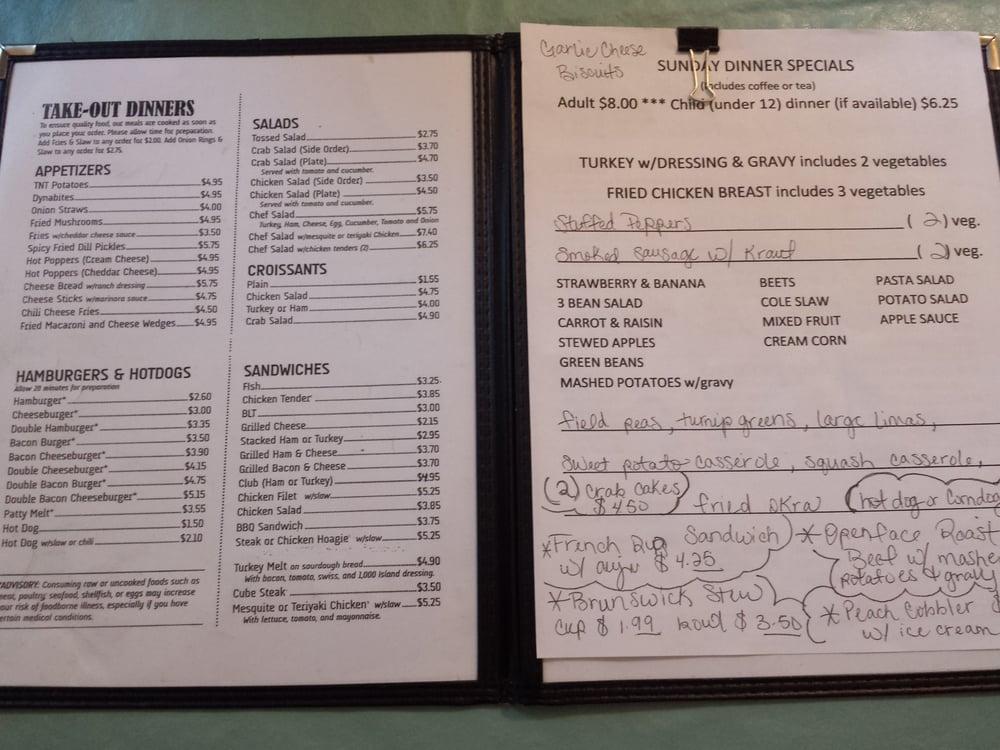 TAKE-OUT DINNERS
To ensure quality food, our meals are cooked as soon as
you place your order. Please allow time for preparation.
Add Fries & Slaw to any order for $2.00. Add Onion Rings &
Slaw to any order for $2.75.
APPETIZERS
TNT Potatoes $4.95
Dynabites $4.95
Onion Straws $4.00
Fried Mushrooms $4.95
Fries w/cheddar cheese sauce $3.50
Spicy Fried Dill Pickles $5.75
Hot Poppers (Cream Cheese) $4.95
Hot Poppers (Cheddar Cheese) $4.95
Cheese Bread w/ranch dressing $5.75
Cheese Sticks w/marinara sauce $4.75
Chili Cheese Fries $4.50
Fried Macaroni and Cheese Wedges $4.95
HAMBURGERS & HOTDOGS
Allow 20 minutes for preparation
Hamburger* $2.60
Cheeseburger* $3.00
Double Hamburger* $3.35
Bacon Burger* $3.50
Bacon Cheeseburger* $3.90
Double Cheeseburger* $4.15
Double Bacon Burger* $4.75
Double Bacon Cheeseburger* $5.15
Patty Melt* $3.55
Hot Dog $1.50
Hot Dog w/slaw or chili $2.10
*ADVISORY: Consuming raw or uncooked foods such as
meat, poultry, seafood, shellfish, or eggs may increase
your risk of foodborne illness, especially if you have
certain medical conditions.
SALADS
Tossed Salad $2.75
Crab Salad (Side Order) $3.70
Crab Salad (Plate) $4.70
Served with tomato and cucumber.
Chicken Salad (Side Order) $3.50
Chicken Salad (Plate) $4.50
Served with tomato and cucumber.
Chef Salad $5.75
Turkey, Ham, Cheese, Egg, Cucumber, Tomato and Onion
Chef Salad w/mesquite or teriyaki Chicken $7.40
Chef Salad w/chicken tenders (2) $6.25
CROISSANTS
Plain $1.55
Chicken Salad $4.75
Turkey or Ham $4.00
Crab Salad $4.90
SANDWICHES
Fish $3.25
Chicken Tender $3.85
BLT $3.00
Grilled Cheese $2.15
Stacked Ham or Turkey $2.95
Grilled Ham & Cheese $3.70
Grilled Bacon & Cheese $3.70
Club (Ham or Turkey) $4.95
Chicken Filet w/slaw $5.25
Chicken Salad $3.85
BBQ Sandwich $3.75
Steak or Chicken Hoagie w/slaw $5.25
Turkey Melt on sourdough bread $4.90
With bacon, tomato, swiss, and 1,000 island dressing.
Cube Steak $3.50
Mesquite or Teriyaki Chicken w/slaw $5.25
With lettuce, tomato, and mayonnaise.
Garlic Cheese
Biscuits
SUNDAY DINNER SPECIALS
(includes coffee or tea)
Adult $8.00 *** Child (under 12) dinner (if available) $6.25
TURKEY w/DRESSING & GRAVY includes 2 vegetables
FRIED CHICKEN BREAST includes 3 vegetables
Stuffed Peppers (2) veg.
Smoked Sausage w/ Kraut (2) veg.
STRAWBERRY & BANANA BEETS PASTA SALAD
3 BEAN SALAD COLE SLAW POTATO SALAD
CARROT & RAISIN MIXED FRUIT APPLE SAUCE
STEWED APPLES CREAM CORN
GREEN BEANS
MASHED POTATOES w/gravy
field peas, turnip greens, large limas,
sweet potato casserole, squash casserole,
(2) crab cakes
$4.50
fried okra
hot dog or Corndog
*French Dip Sandwich
w/ aujus $4.25
*Openface Roast
Beef w/ mashe
potatoes & gravy
*Brunswick Stew
cup $1.99 bowl $3.50
*Peach Cobbler $
w/ ice cream